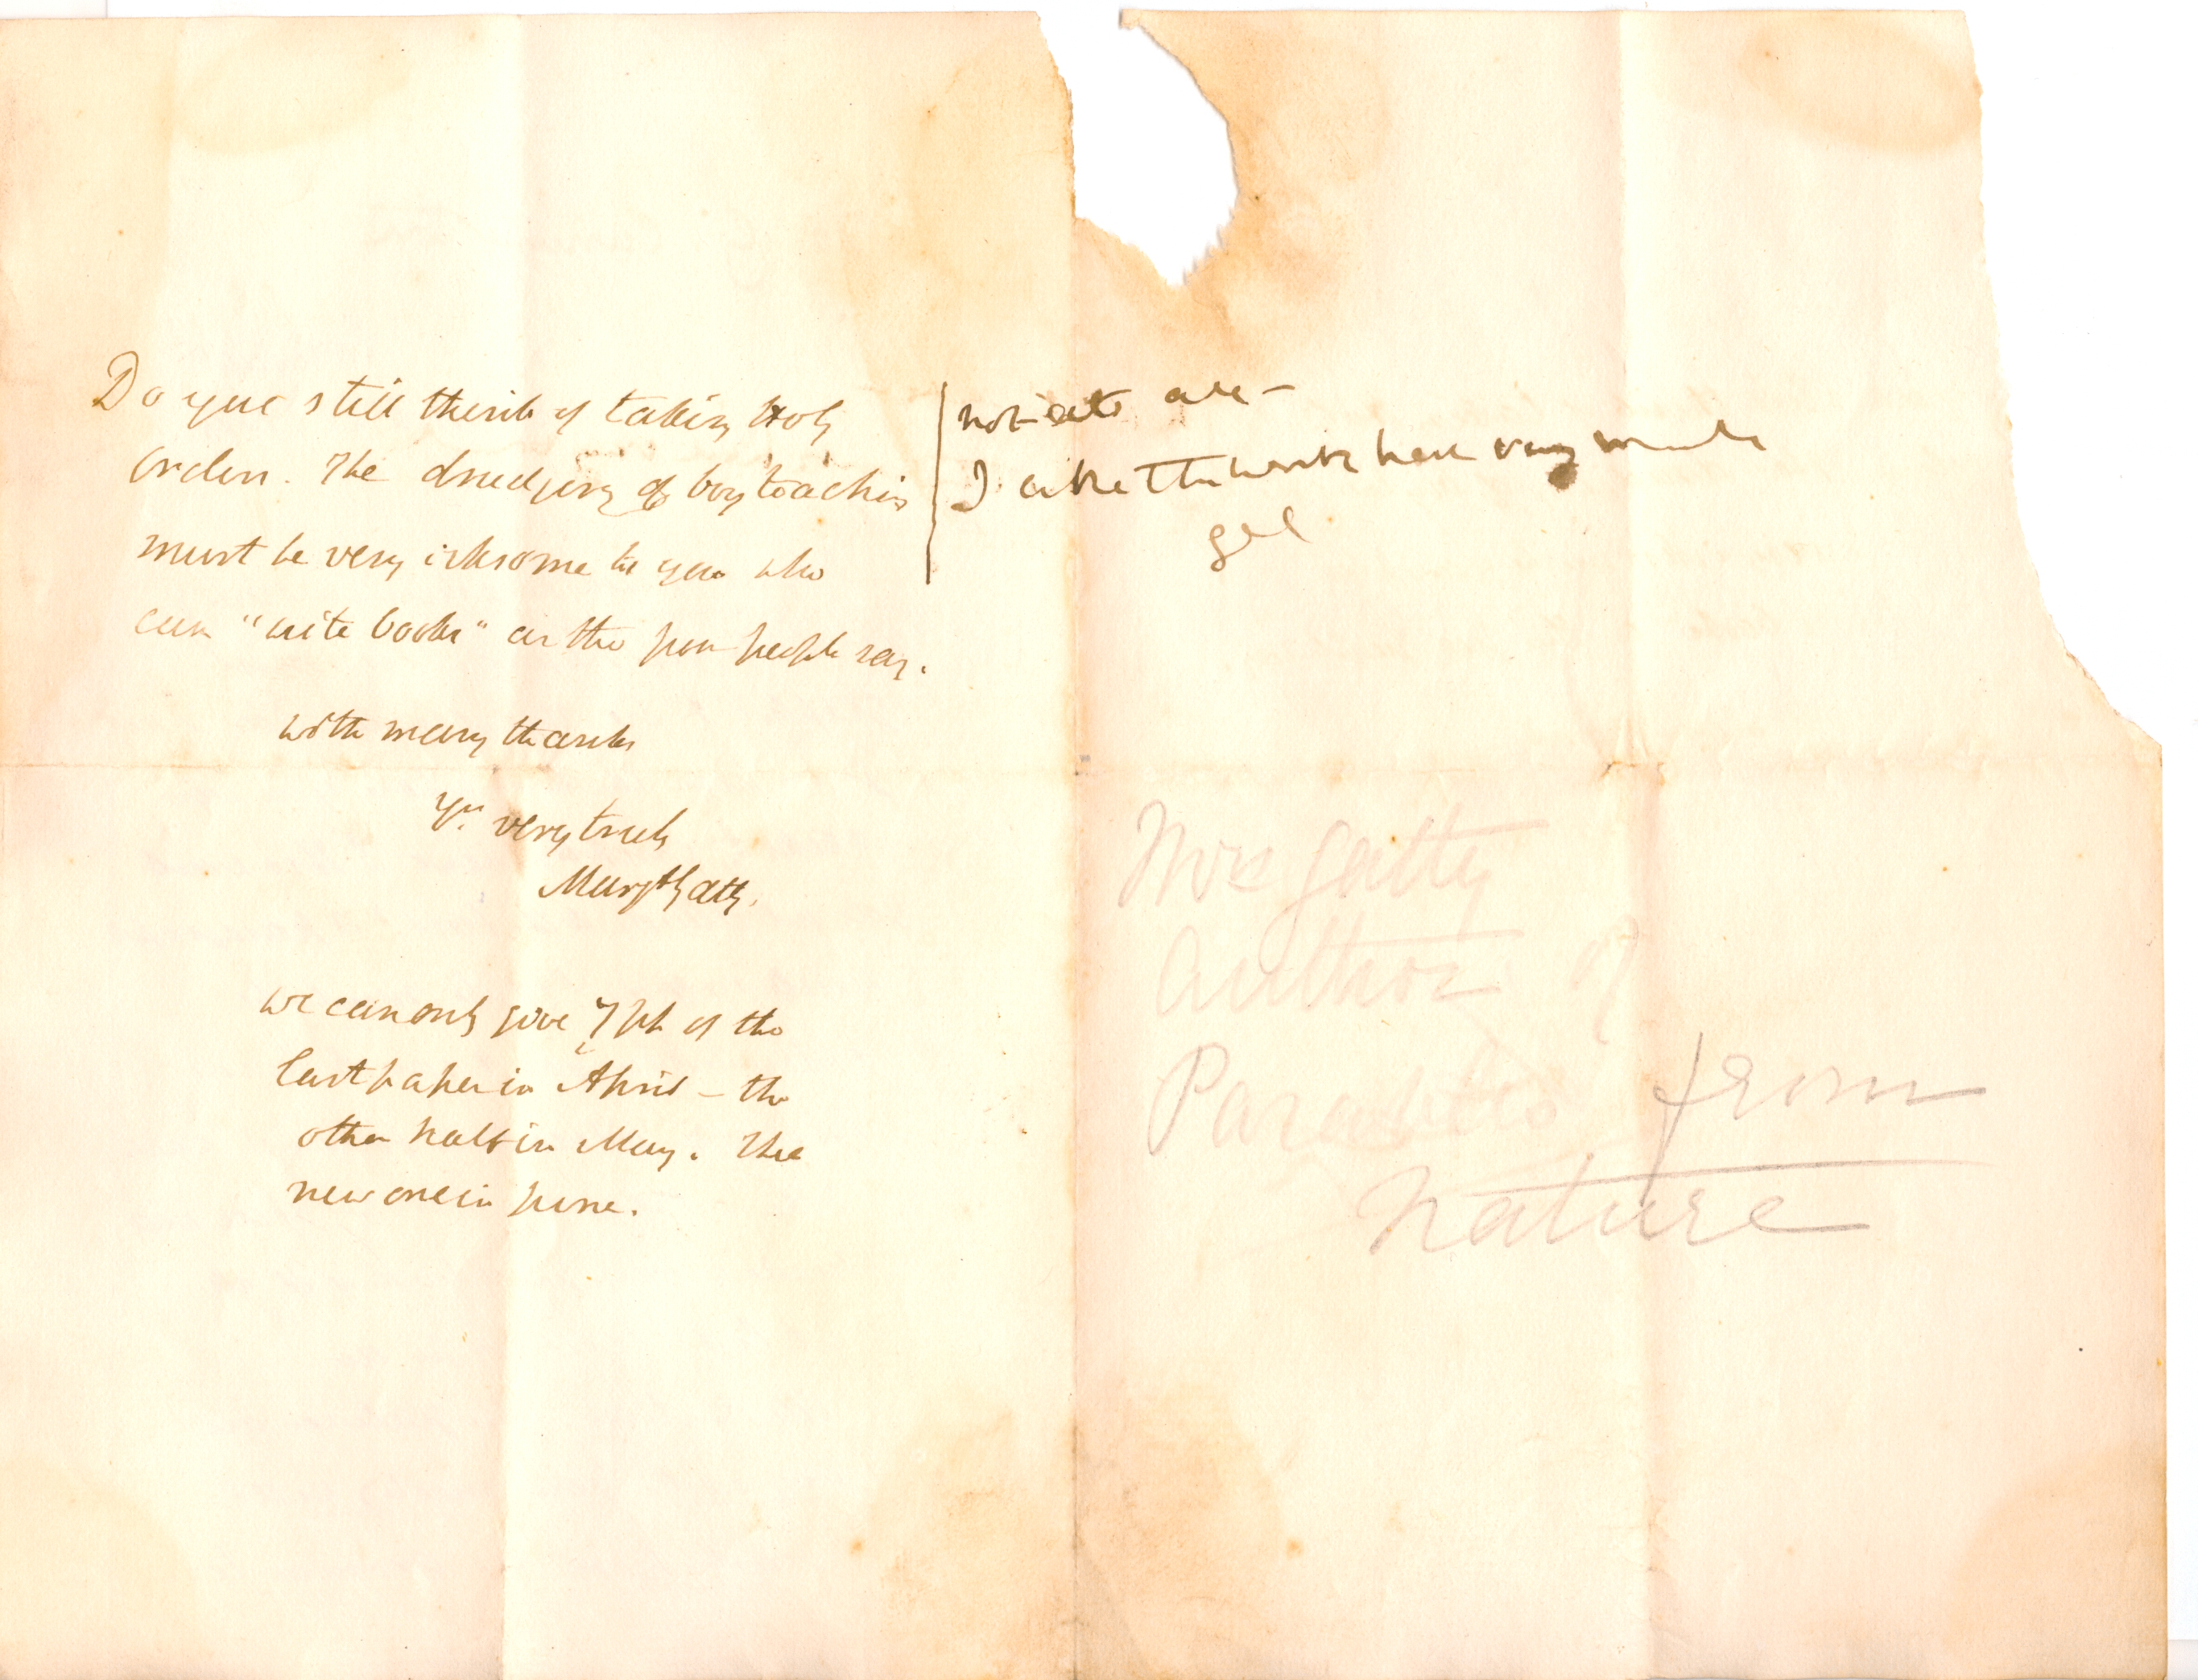 Do you still think of taking Holy
Orders. The drudgery of boy teaching
must be very irksome to you who
can "write books" as the poor people say.
with many thanks
Yrs. very truly
Marg.t Gatty.
we can only give 7 pp. of the
last paper in April – the
other half in May. The
new one in June.
not at all –
I like the work here very much
Mrs Gatty
author of
Parables from
Nature